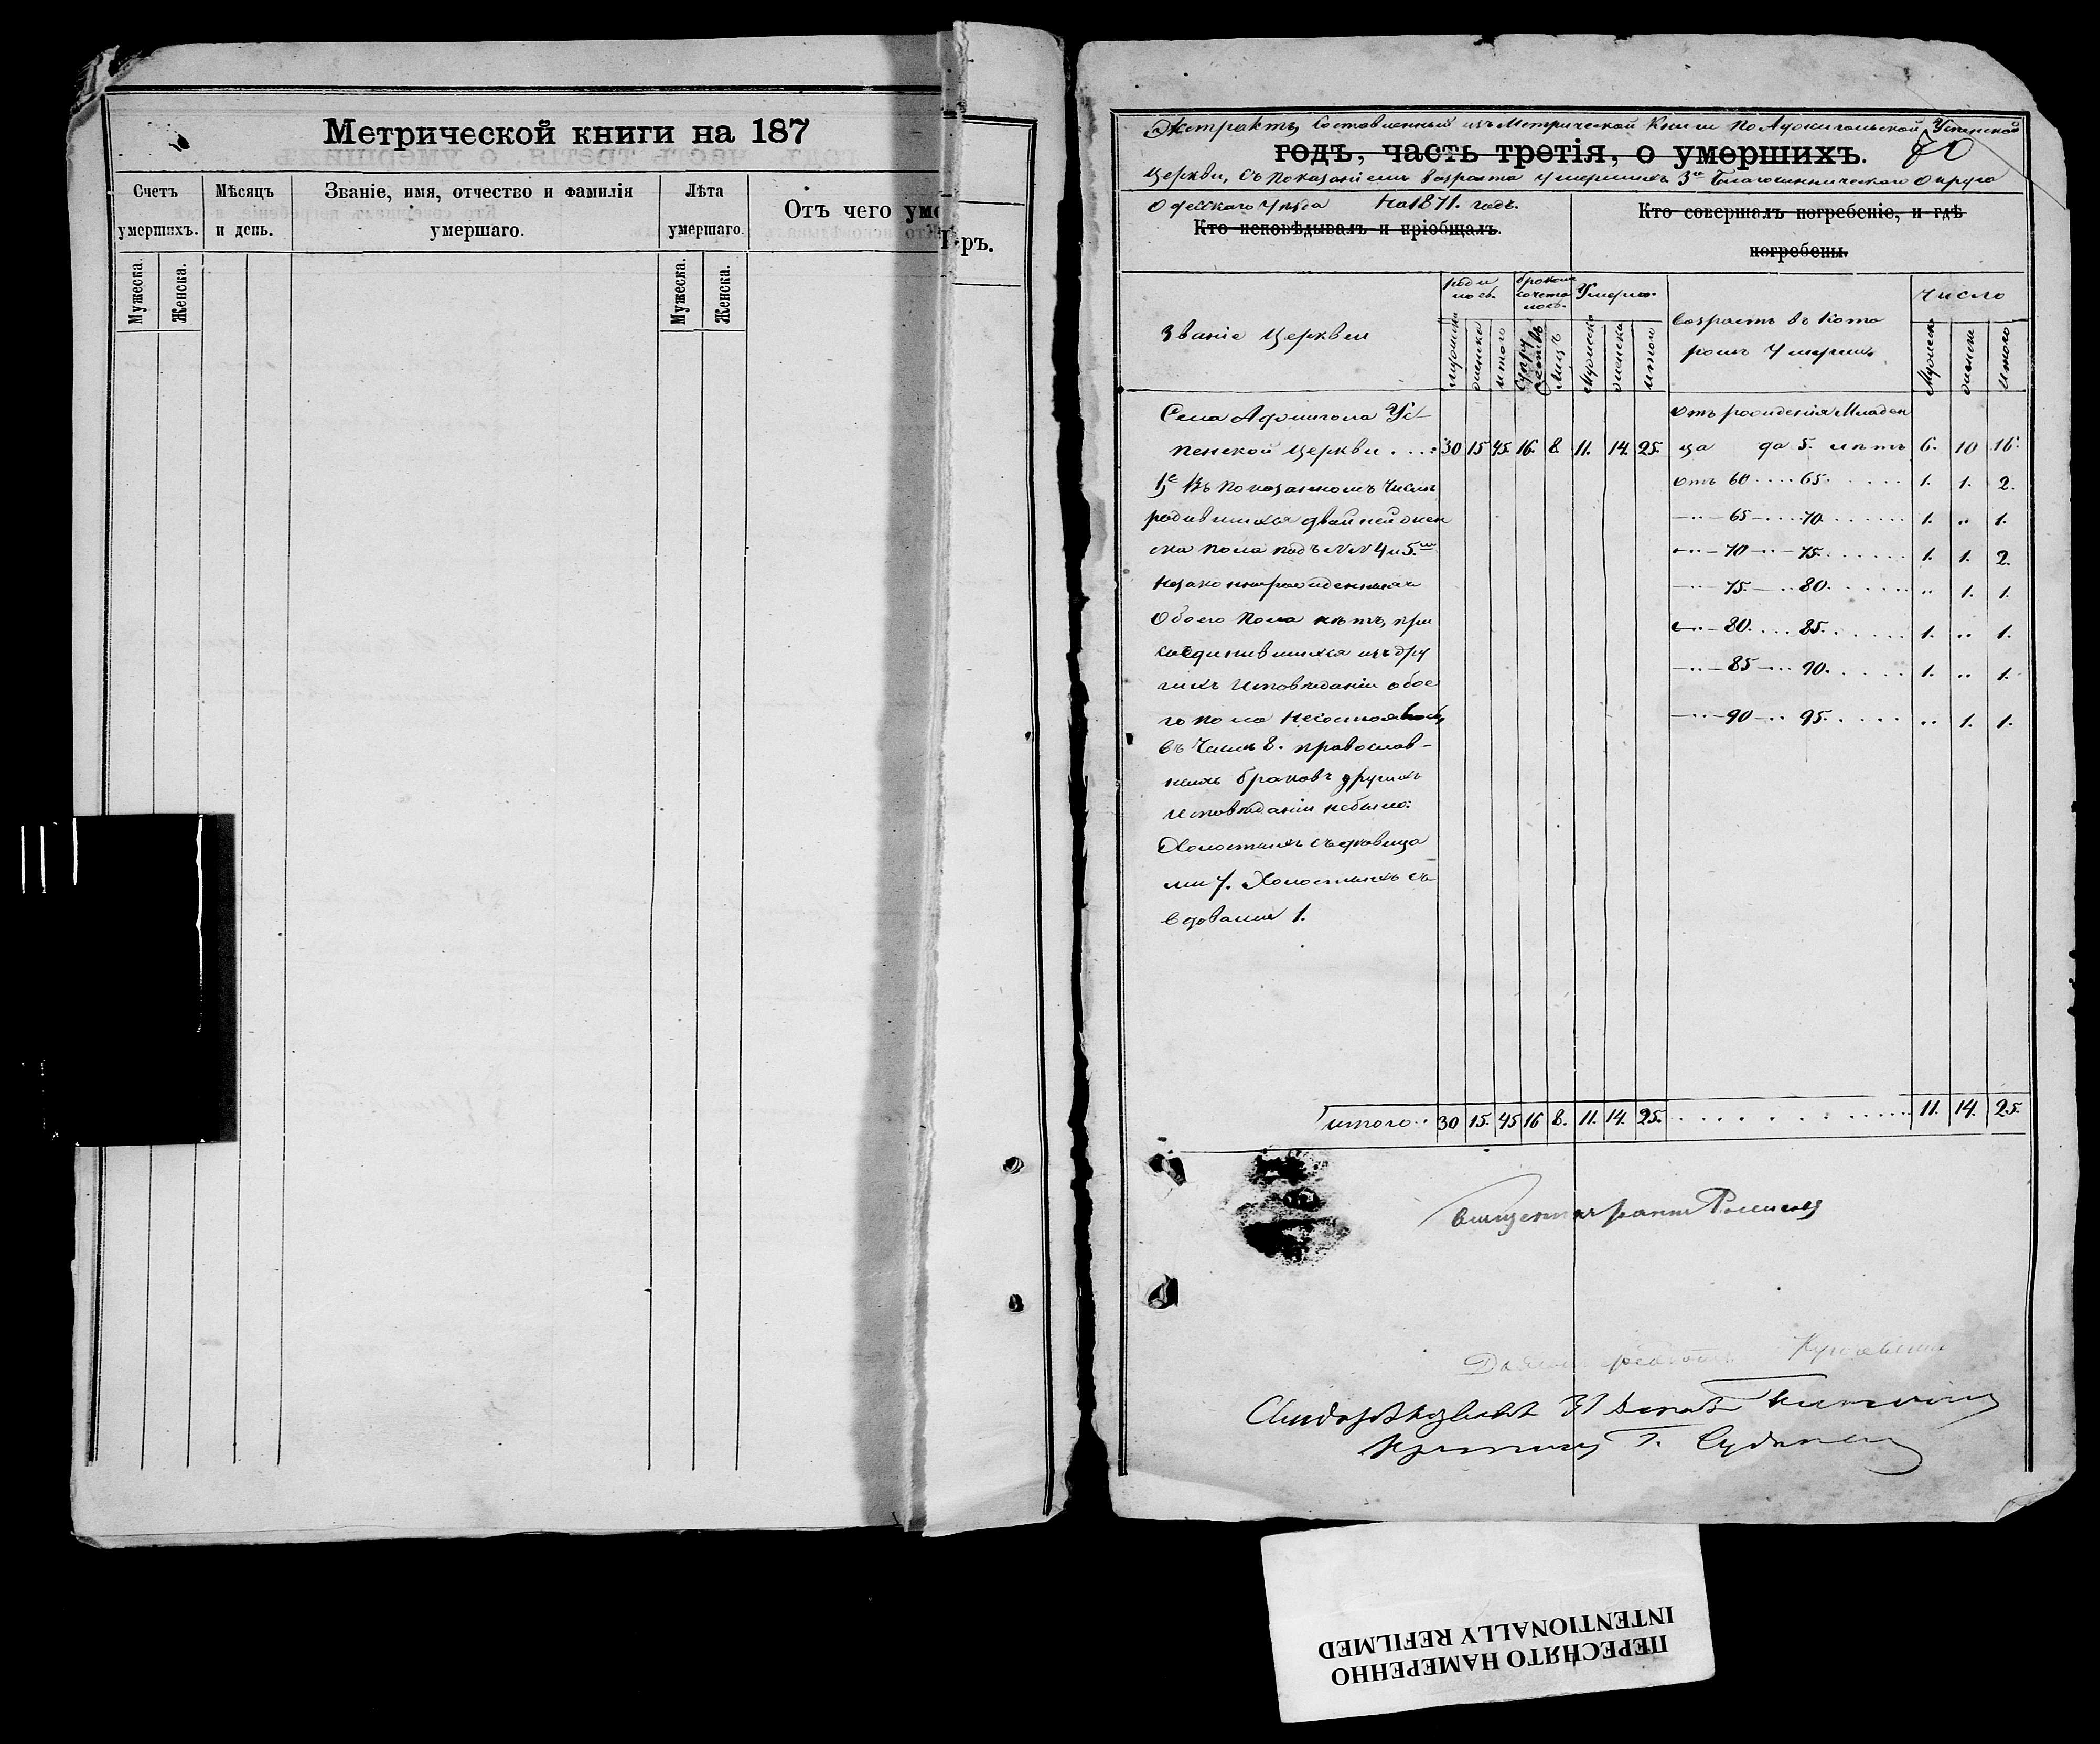 Метрической книги на 187
Счетъ умершихъ.
Мѣсяцъ и день.
Званіе, имя, отчество и фамилія умершаго.
Лѣта умершаго.
Отъ чего умо
ръ.
Мужеска.
Женска.
Мужеска.
Женска.
Экстрактъ, составленный изъ Метрической Книги по Аджигольской Успенской
годъ, часть третія, о умершихъ.
70
Церкви, съ показаніемъ возраста умершихъ 3го Благочинническаго Округа
Одесскаго уѣзда на 1871. годъ.
Кто исповѣдывалъ и пріобщалъ.
Кто совершалъ погребеніе, и гдѣ погребены.
Званіе Церкви
роди лось.
бракомъ сочета лось.
Умерло.
возрастъ въ кото ромъ умерли.
число
мужеска
женска
итого
Супру жествъ
лицъ
мужеска
женска
итого
мужеска
женска
итого
Села Аджигола Ус
пенской Церкви . . . 30 15 45. 16. 8. 11. 14. 25.
въ показанномъ числѣ
родившихся двойней жен
ска пола подъ №№ 4 и 5.
незаконнорожденныхъ
обоего пола нѣтъ, при
соединившихся изъ дру
гихъ исповѣданій обое
го пола
въ числѣ 8. православ-
ныхъ браковъ другихъ
исповѣданій небыло:
Холостыхъ съ дѣвица
ми 7. Холостыхъ съ
вдовами 1.
отъ рожденія младен
ца до 5. лѣтъ 6. 10 16.
отъ 60 .... 65. 1. 1. 2.
65 .... 70. 1. „ 1.
70 .... 75. 1. 1. 2.
75. .... 80. „ 1. 1.
80. .... 85. 1. „ 1.
85 .... 90. 1. „ 1.
90 .... 95. „ 1. 1.
итого .. 30 15. 45 16 8. 11. 14. 25. 11. 14. 25.
Священникъ
ПЕРЕСНЯТО НАМЕРЕННО
INTENTIONALLY REFILMED